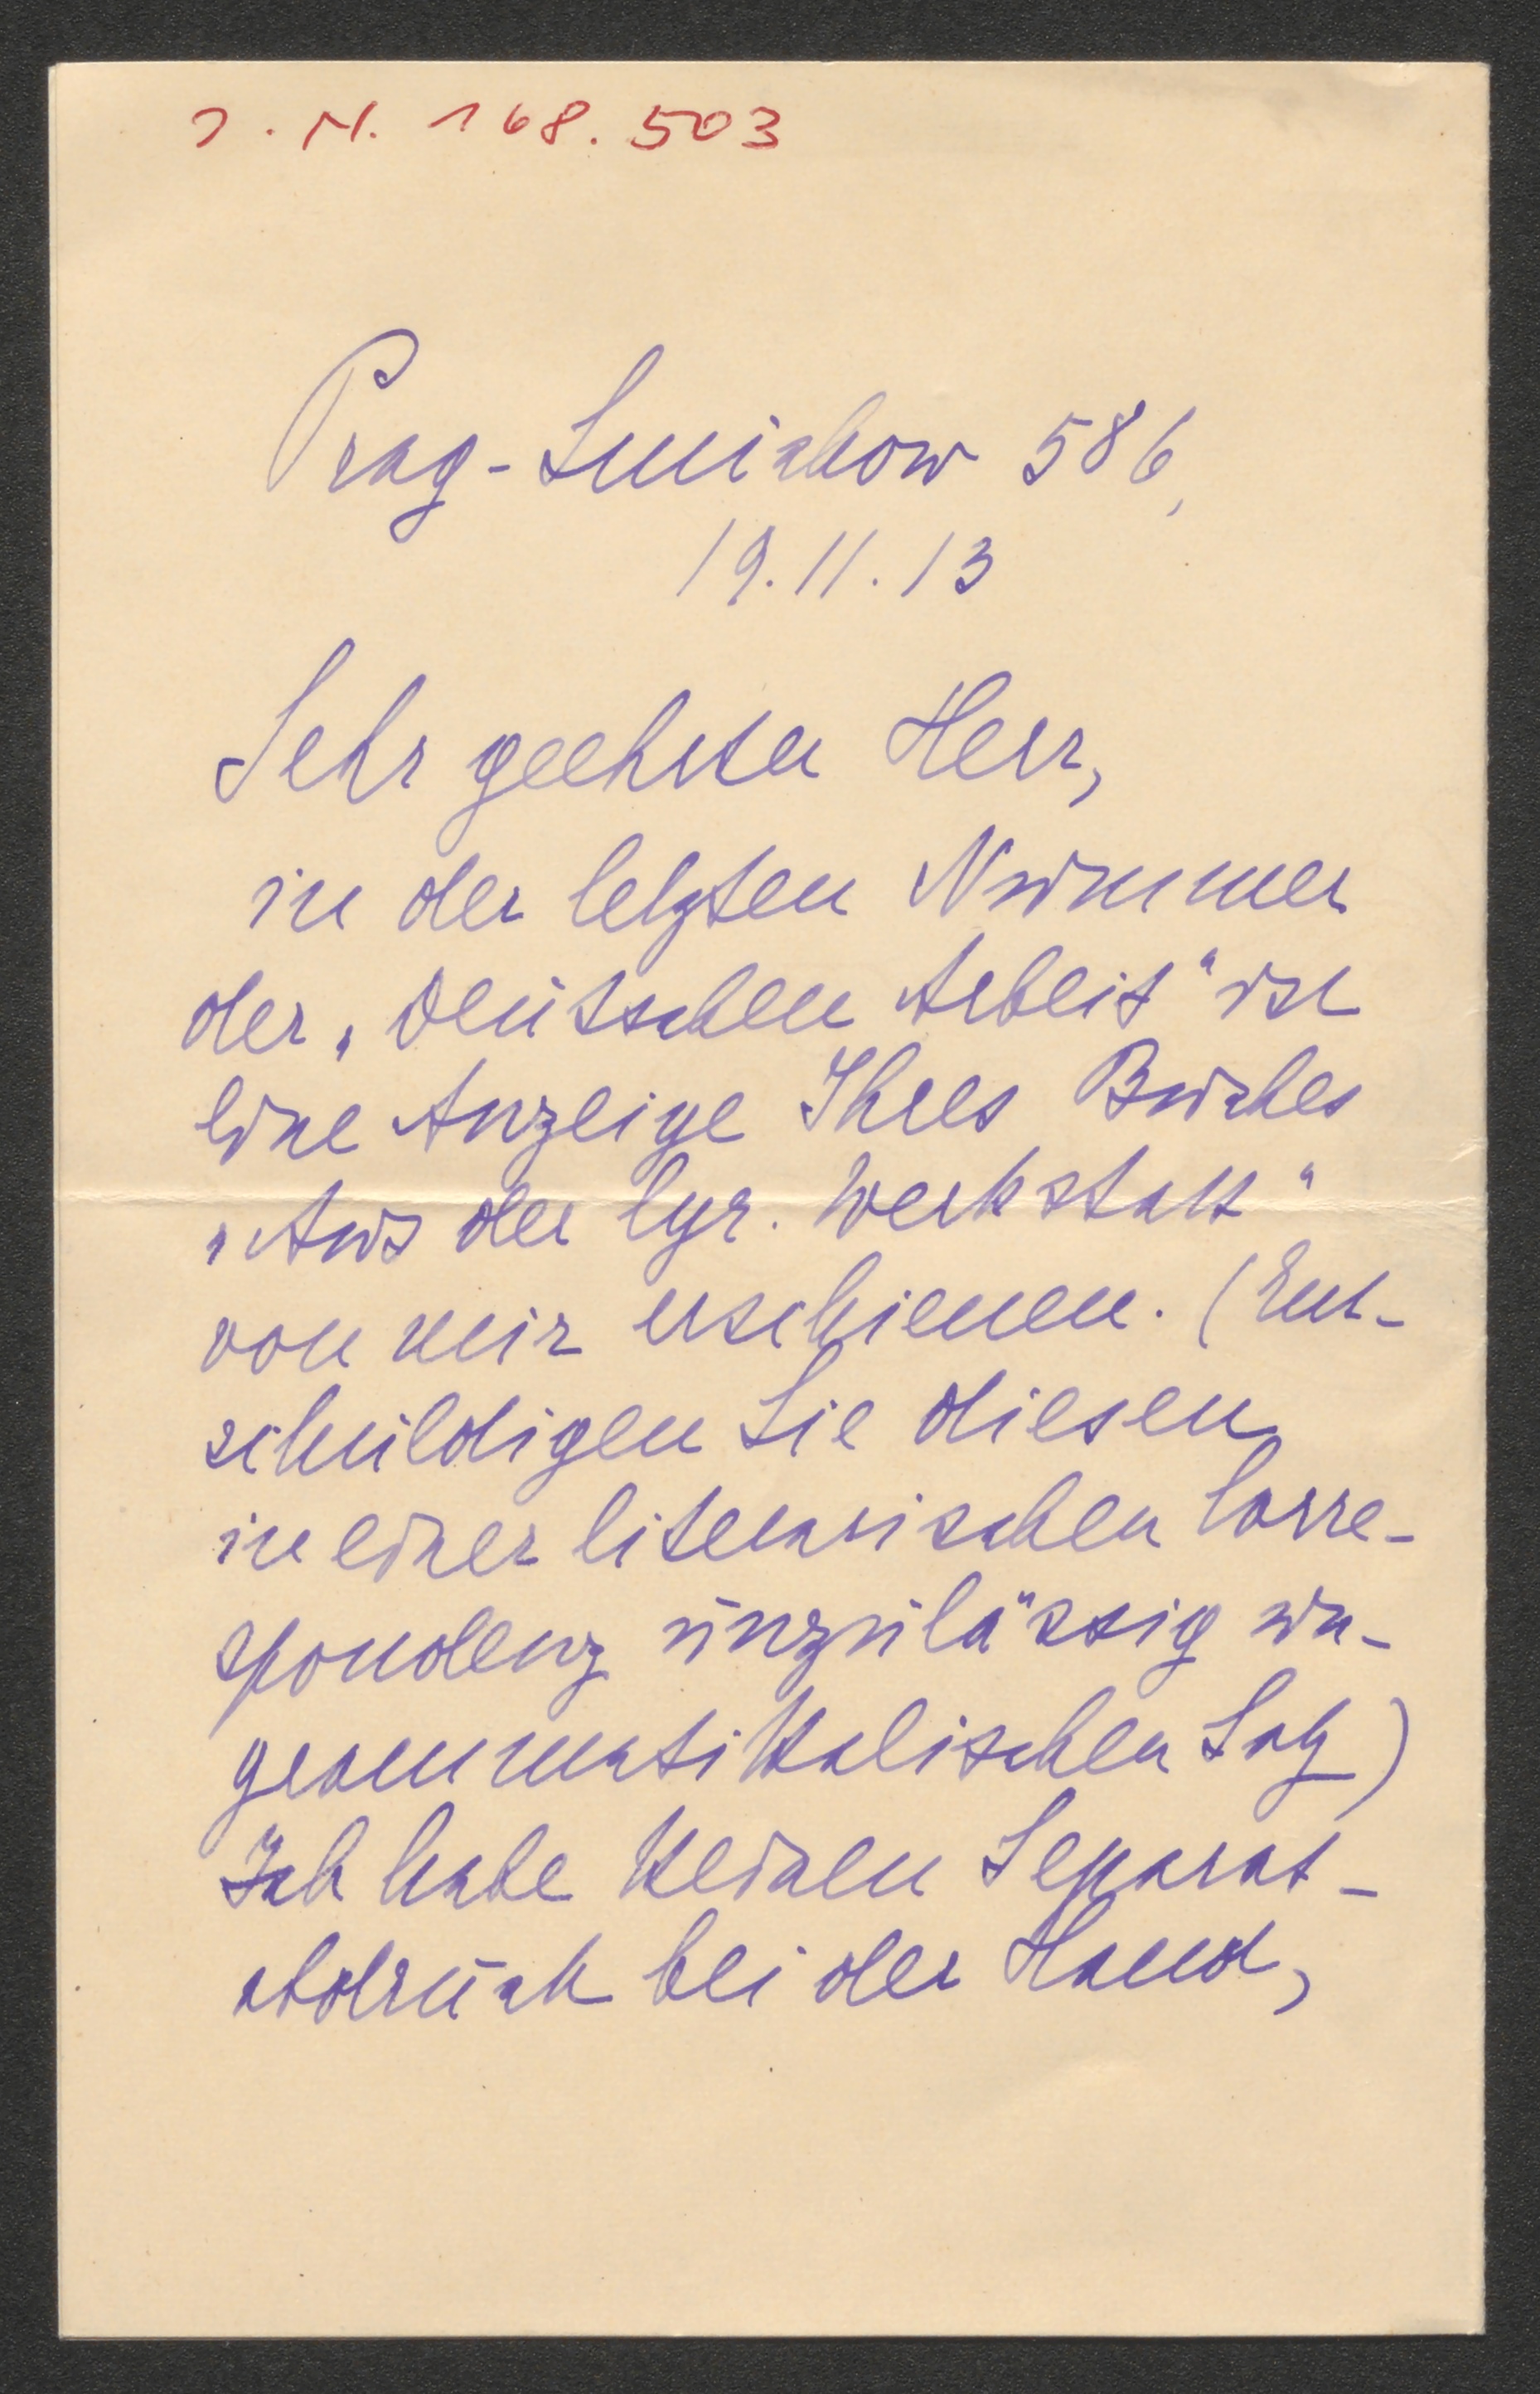 J. N. 168.503
Prag-Smichow 586,
19.11.13
Sehr geehrter Herr,
in der letzten Nummer
der „Deutschen Arbeit“ ist
eine Anzeige Ihres Buches
„Aus der lyr. Werkstatt“
von mir erschienen. (Ent-
schuldigen Sie diesen
in einer literarischen Corre-
spondenz unzulässig un-
grammatikalischen Satz)
Ich habe keinen Separat-
abdruck bei der Hand,